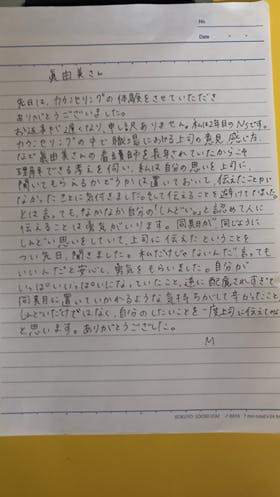 No.
Date
眞由美さん
先日は、カウンセリングの体験をさせていただき
ありがとうございました。
お返事が遅くなり、申し訳ありません。私は2年目のNsです。
カウンセリングの中で職場における上司の意見、感じ方、
など眞由美さんの看護師を長年されていたからこそ
理解できる考えを伺い、私は自分の思いを上司に
聞いてもらえるかどうかは置いておいて、伝えたことが
なかったことに気付きました。そして伝えることを避けてました。
とは言っても、なかなか自分の「しんどい。」と認めて人に
伝えることは勇気がいります。同期が同じように
しんどい思いをしていて、上司に伝えたということを
つい先日、聞きました。私だけじゃないんだ、言っても
いいんだと安心し、勇気をもらいました。自分が
いっぱいいっぱいになっていたこと、逆に配慮されすぎて
同期に置いていかれるような気持ちがして辛かったこと、
しんどいだけではなく、自分のしたいことを一度上司に伝えて
と思います。ありがとうございました。
M
KOKUYO LOOSE-LEAF